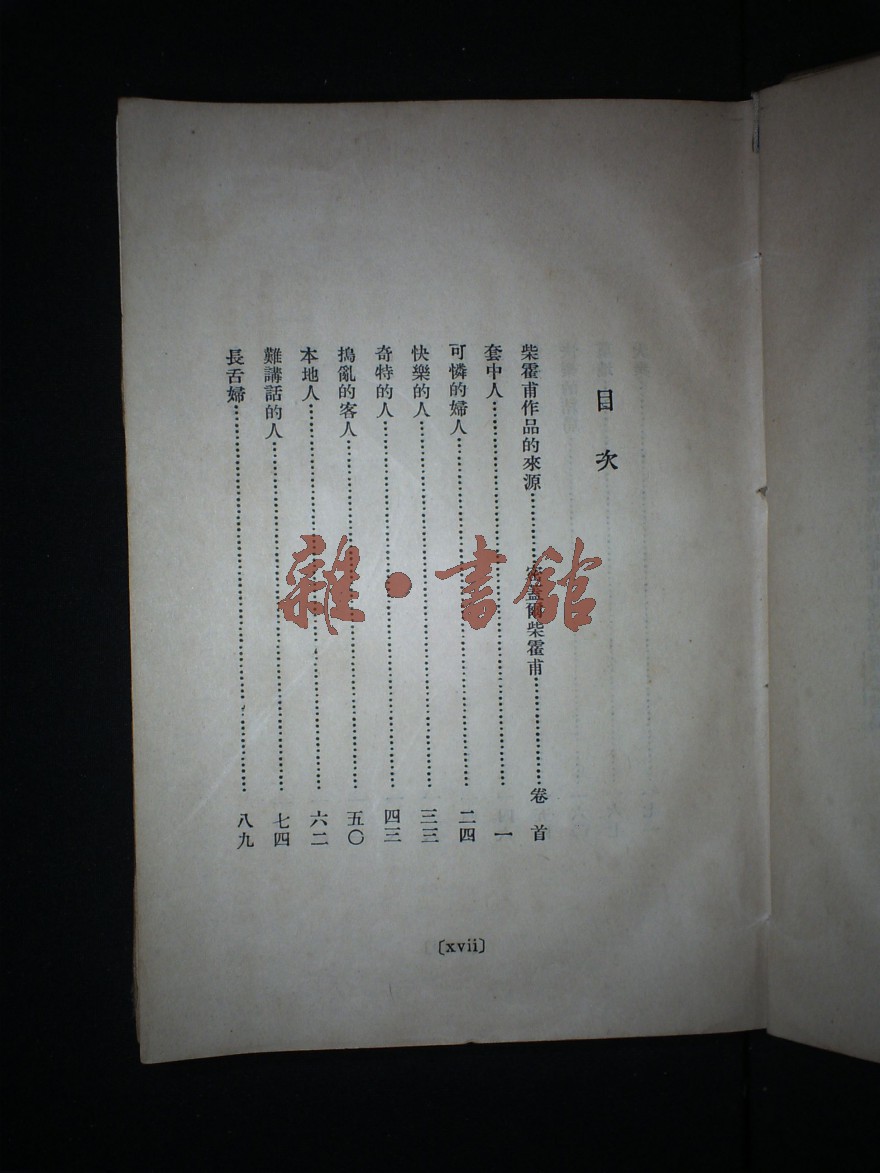 目次
柴霍甫作品的來源……密蓋爾柴霍甫……卷首
套中人……一
可憐的婦人……二四
快樂的人……三三
奇特的人……四三
搗亂的客人……五〇
本地人……六二
難講話的人……七四
長舌婦……八九
〔xvii〕
雜·書館